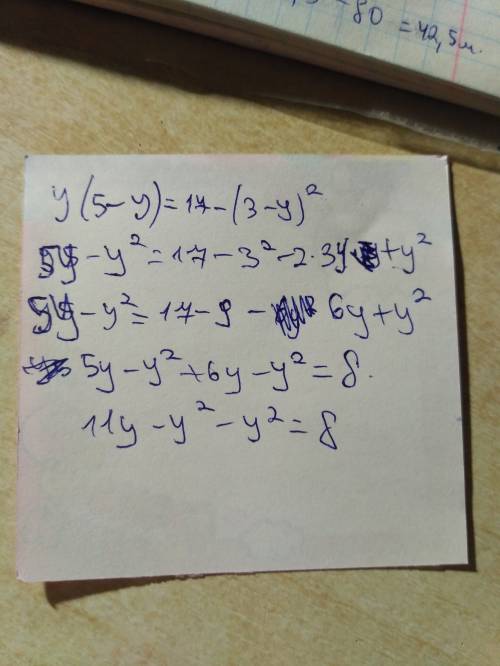 - 80 = 42,5м.
y(5-y)=17-(3-y)²
5y-y²=17-3²-2·3y+y²
5y-y²=17-9-6y+y²
5y-y²+6y-y²=8.
11y-y²-y²=8